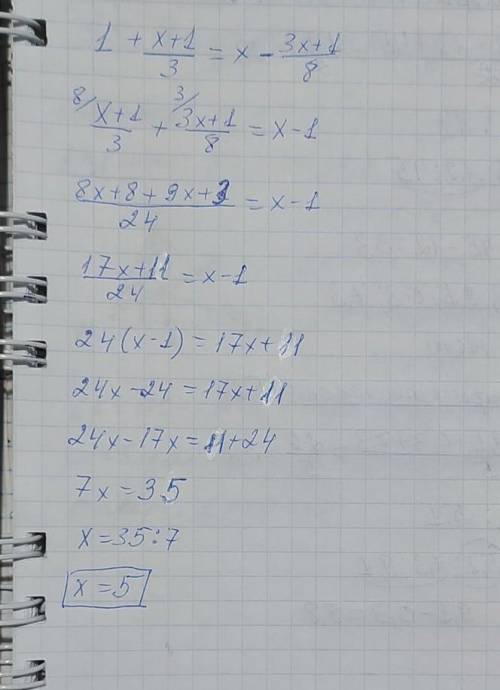 1 + \frac{x+1}{3} = x - \frac{3x+1}{8}
^{8/}\frac{x+1}{3} + ^{3/}\frac{3x+1}{8} = x-1
\frac{8x+8+9x+3}{24} = x-1
\frac{17x+11}{24} = x-1
24(x-1) = 17x+11
24x-24 = 17x+11
24x-17x = 11+24
7x = 35
x = 35:7
x = 5